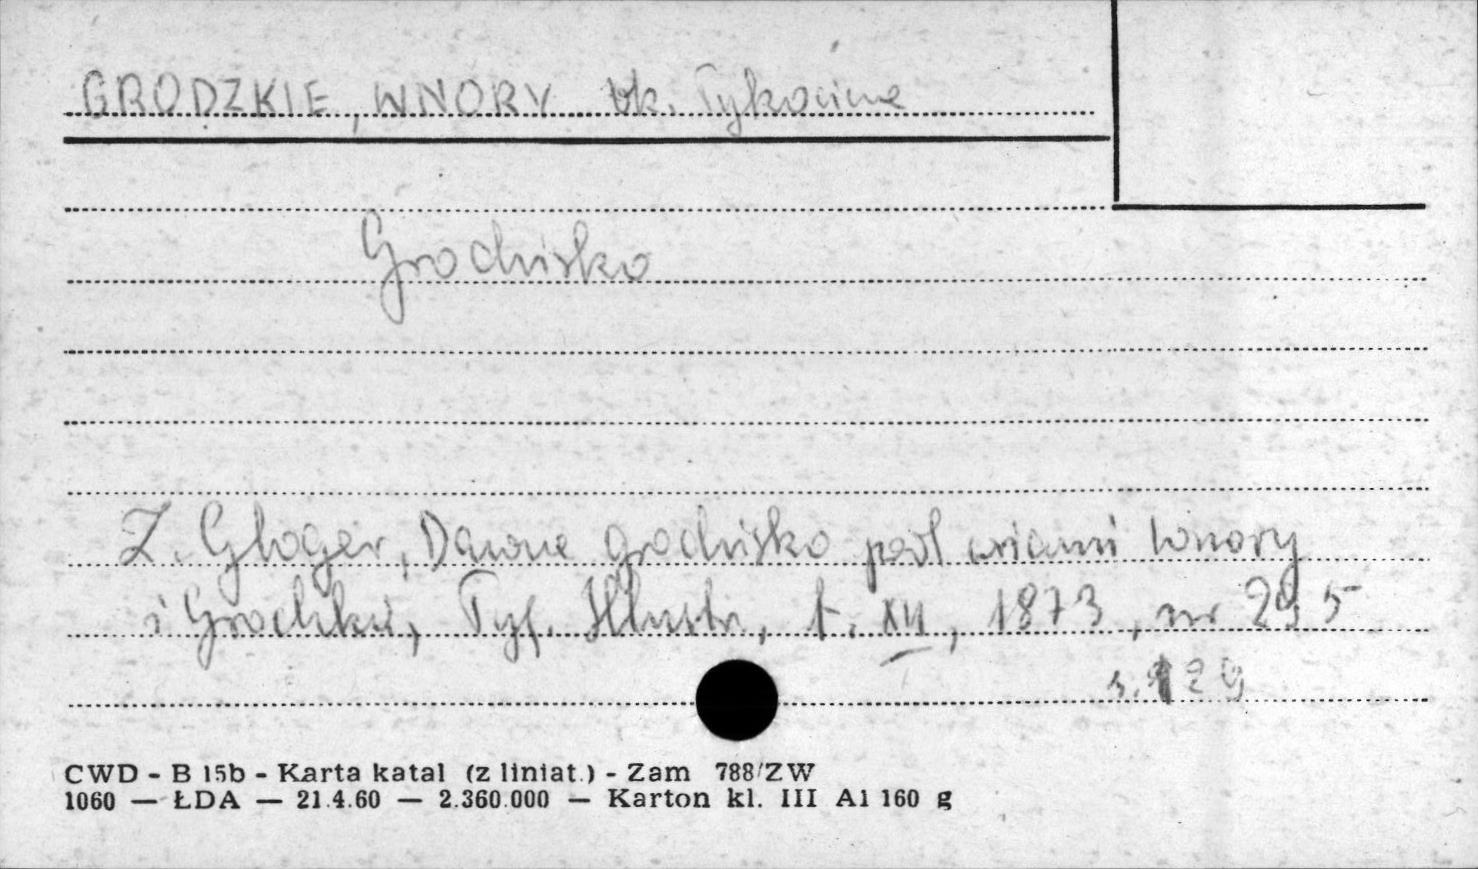 GRODZKIE, WNORY ok. Tykocina
Grodzisko
Z. Gloger, Dawne grodzisko pod wsiami Wnory
i Grodzkie, Tyg. Illustr, t. XII, 1873, nr 295
s. 129
CWD - B 15b - Karta katal (z liniat.) - Zam 788/ZW
1060 — ŁDA — 21.4.60 — 2.360.000 — Karton kl. III A1 160 g